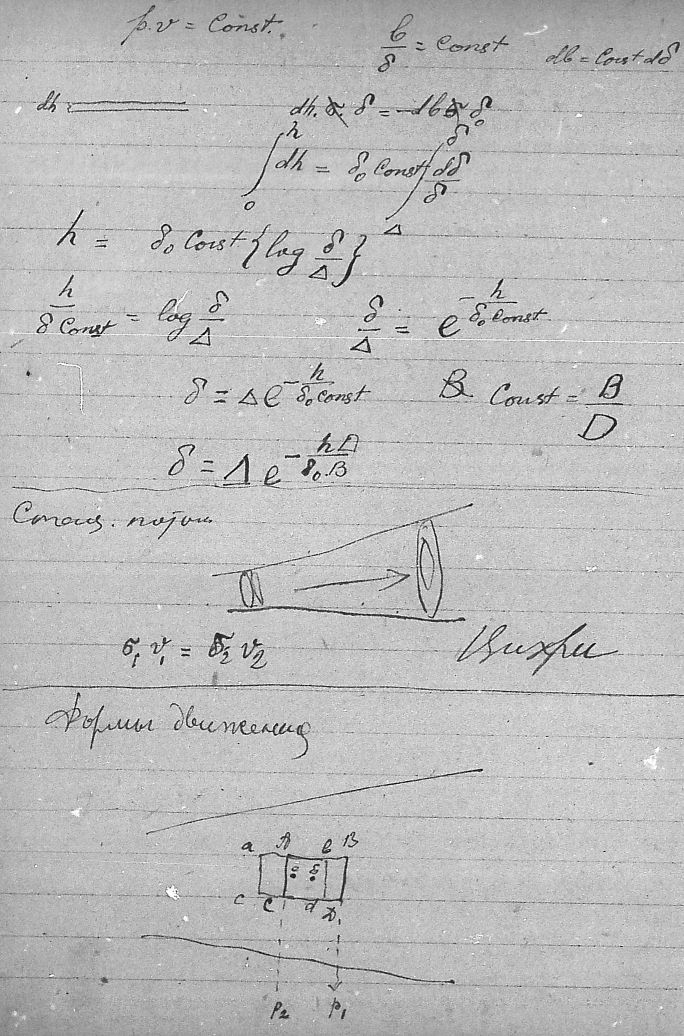 p.v = Const.
b/δ = Const db = Const dδ
dh dh. δ = -db δ₀
∫₀ʰ dh = δ₀ Const ∫_Δ^δ dδ/δ
h = δ₀ Const {log δ/Δ}
h/δ Const = log δ/Δ δ/Δ = e^{-h/δ₀Const}
δ = Δe^{-h/δ₀Const} Const = B/D
δ = Δ e^{-hD/δ₀.B}
Стац. поток
σ₁ v₁ = σ₂ v₂ Вихри
Формы движения
a A b B
c C d D₁
p₂ p₁